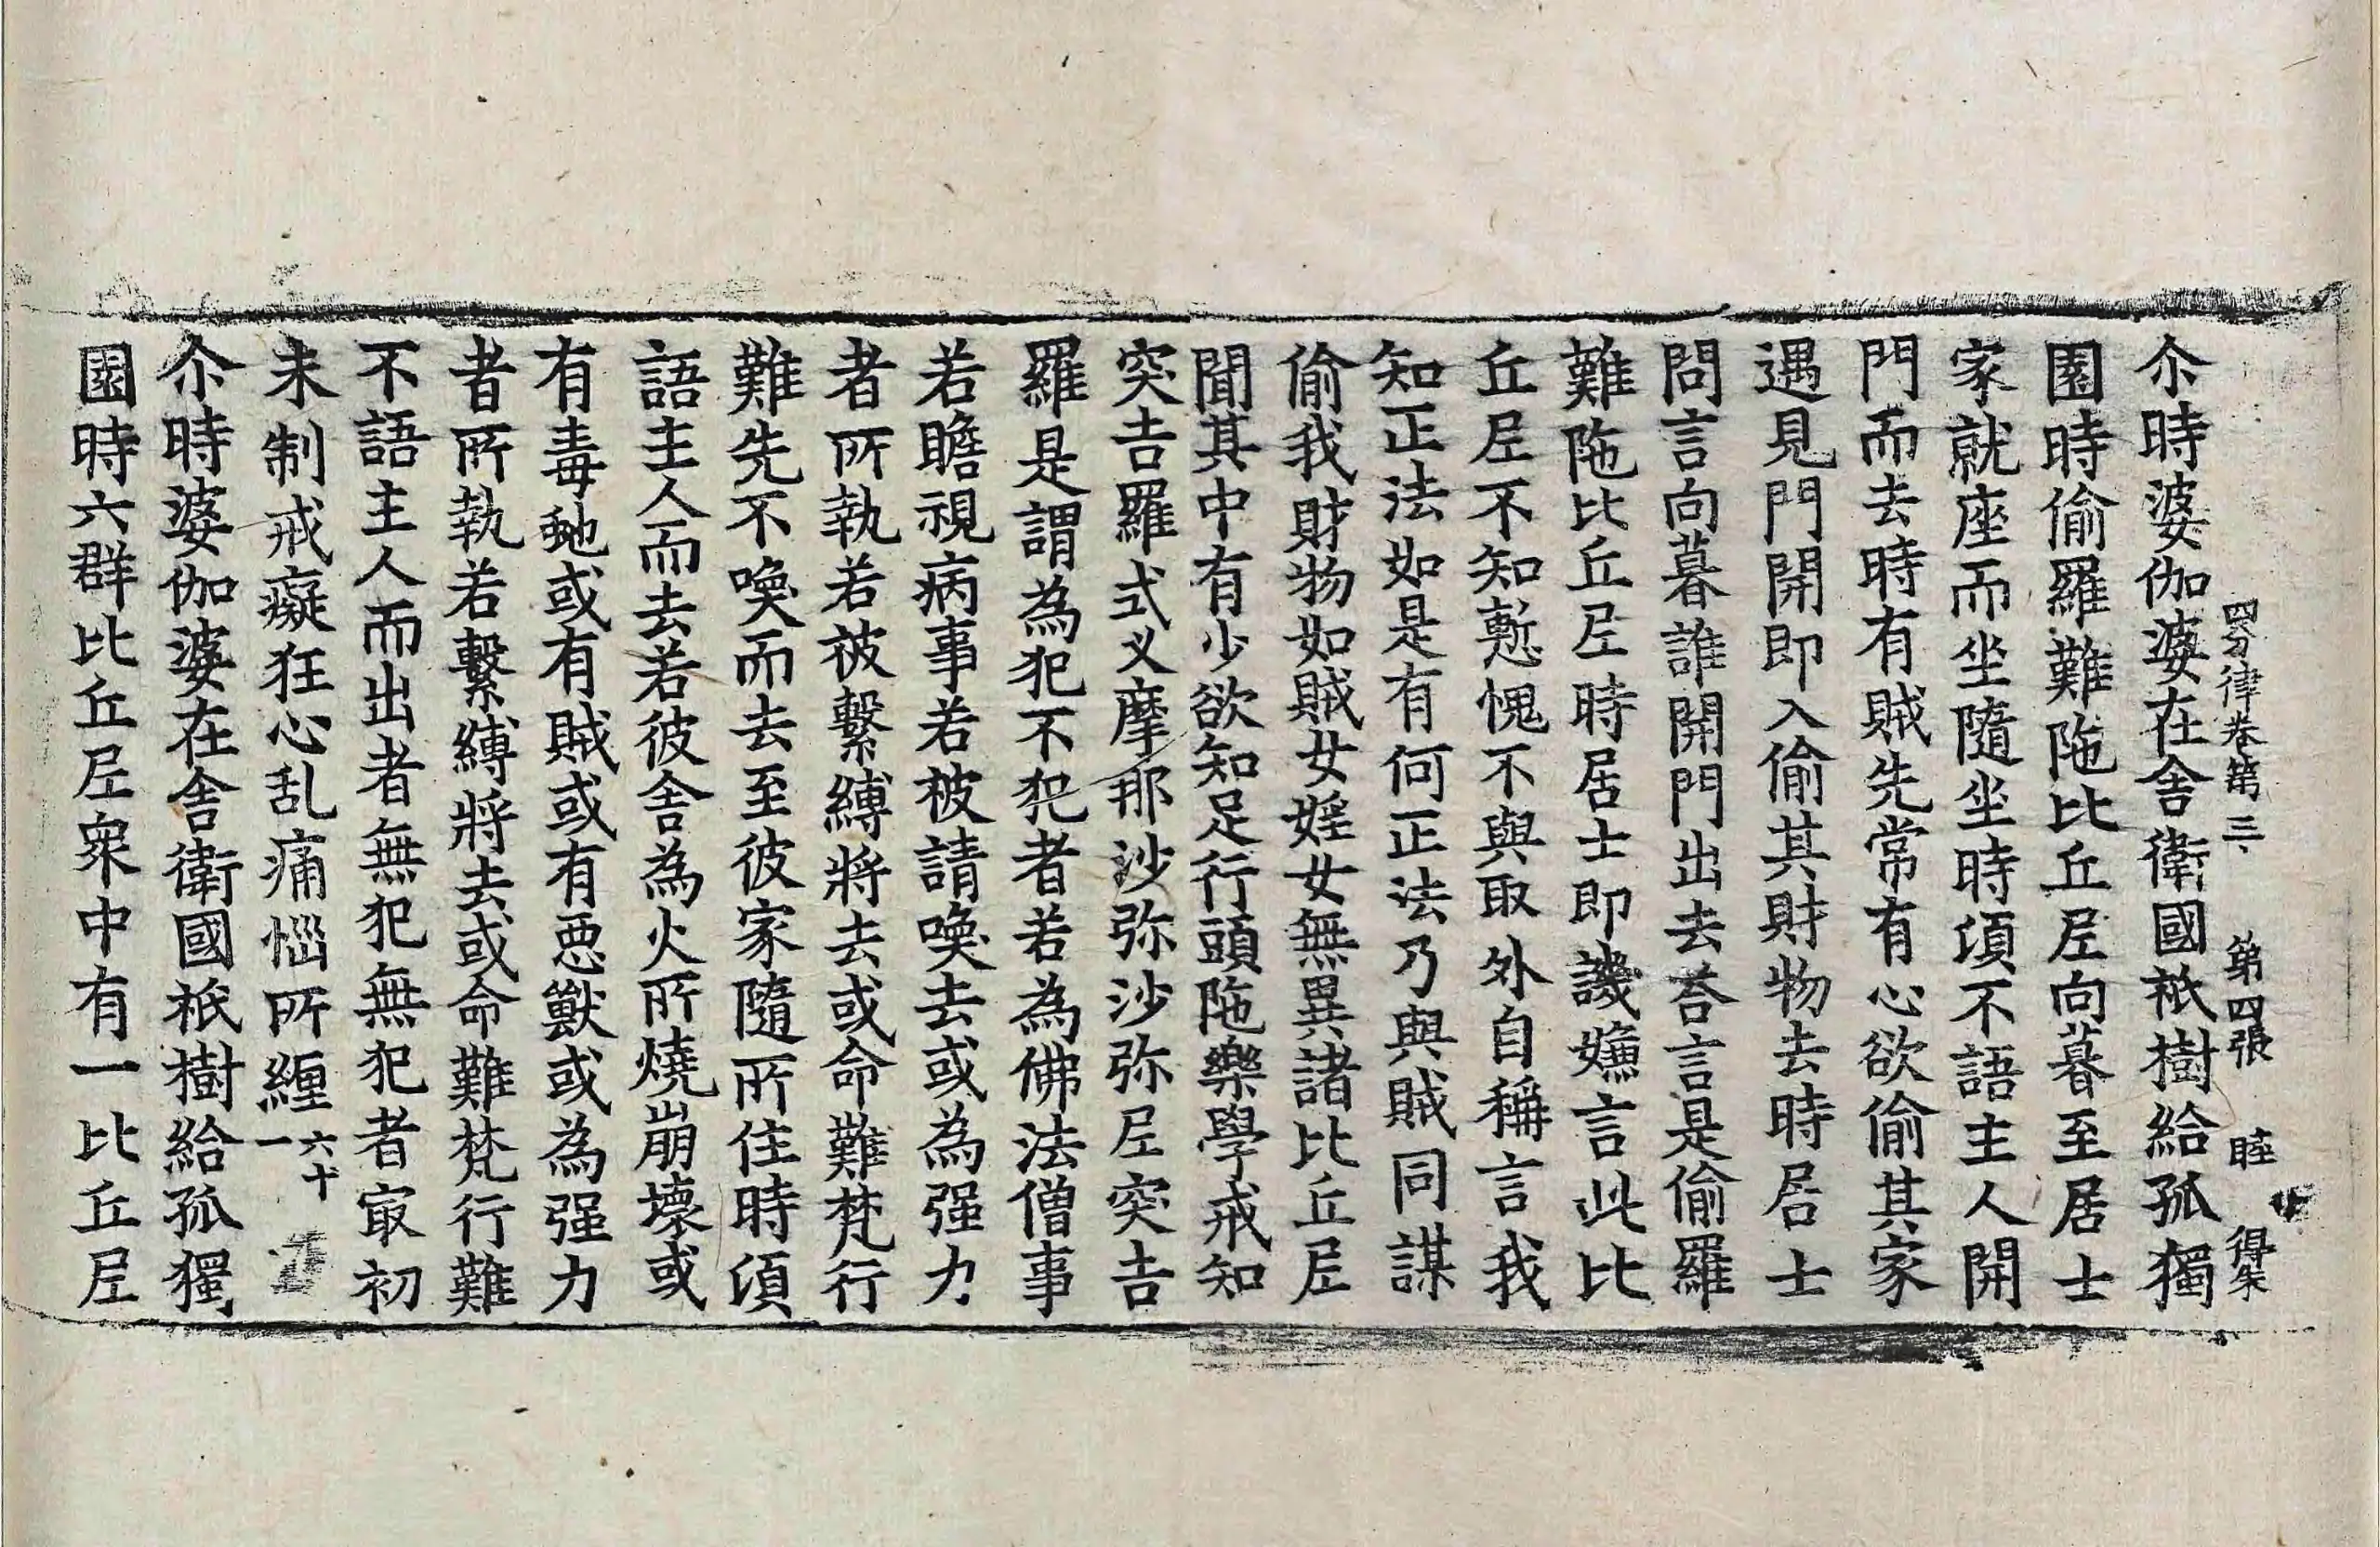 四分律卷第三 第四張 睦 得柴
尒時婆伽婆在舍衛國祇樹給孤獨
園時偷羅難陁比丘尼向暮至居士
家就座而坐隨坐時須不語主人開
門而去時有賊先常有心欲偷其家
遇見門開即入偷其財物去時居士
問言向暮誰開門出去荅言是偷羅
難陁比丘尼時居士即譏嫌言此比
丘尼不知慙愧不與取外自稱言我
知正法如是有何正法乃與賊同謀
偷我財物如賊女婬女無異諸比丘尼
聞其中有少欲知足行頭陁樂學戒知
突吉羅式叉摩那沙弥沙弥尼突吉
羅是謂為犯不犯者若為佛法僧事
若瞻視病事若被請喚去或為强力
者所執若被繫縛將去或命難梵行
難先不喚而去至彼家隨所住時須
語主人而去若彼舍為火所燒崩壞或
有毒虵或有賊或有惡獸或為强力
者所執若繫縛將去或命難梵行難
不語主人而出者無犯無犯者冣初
未制戒癡狂心乱痛惱所纏 六十一
尒時婆伽婆在舍衛國祇樹給孤獨
園時六群比丘尼衆中有一比丘尼